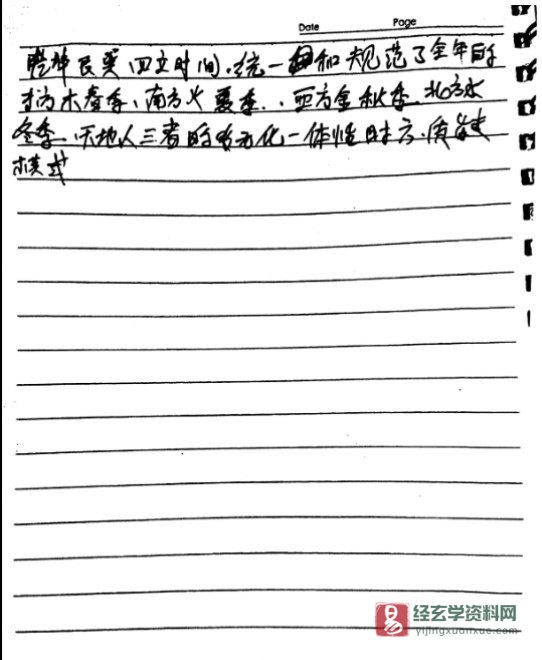 Date Page
艮巽四立时间.统一和规范了全年的
东方木春季、南方火夏季、西方金秋季、北方水
冬季.天地人三者的一体性时方.
模式
经玄学资料网
yijingxuanxue.com